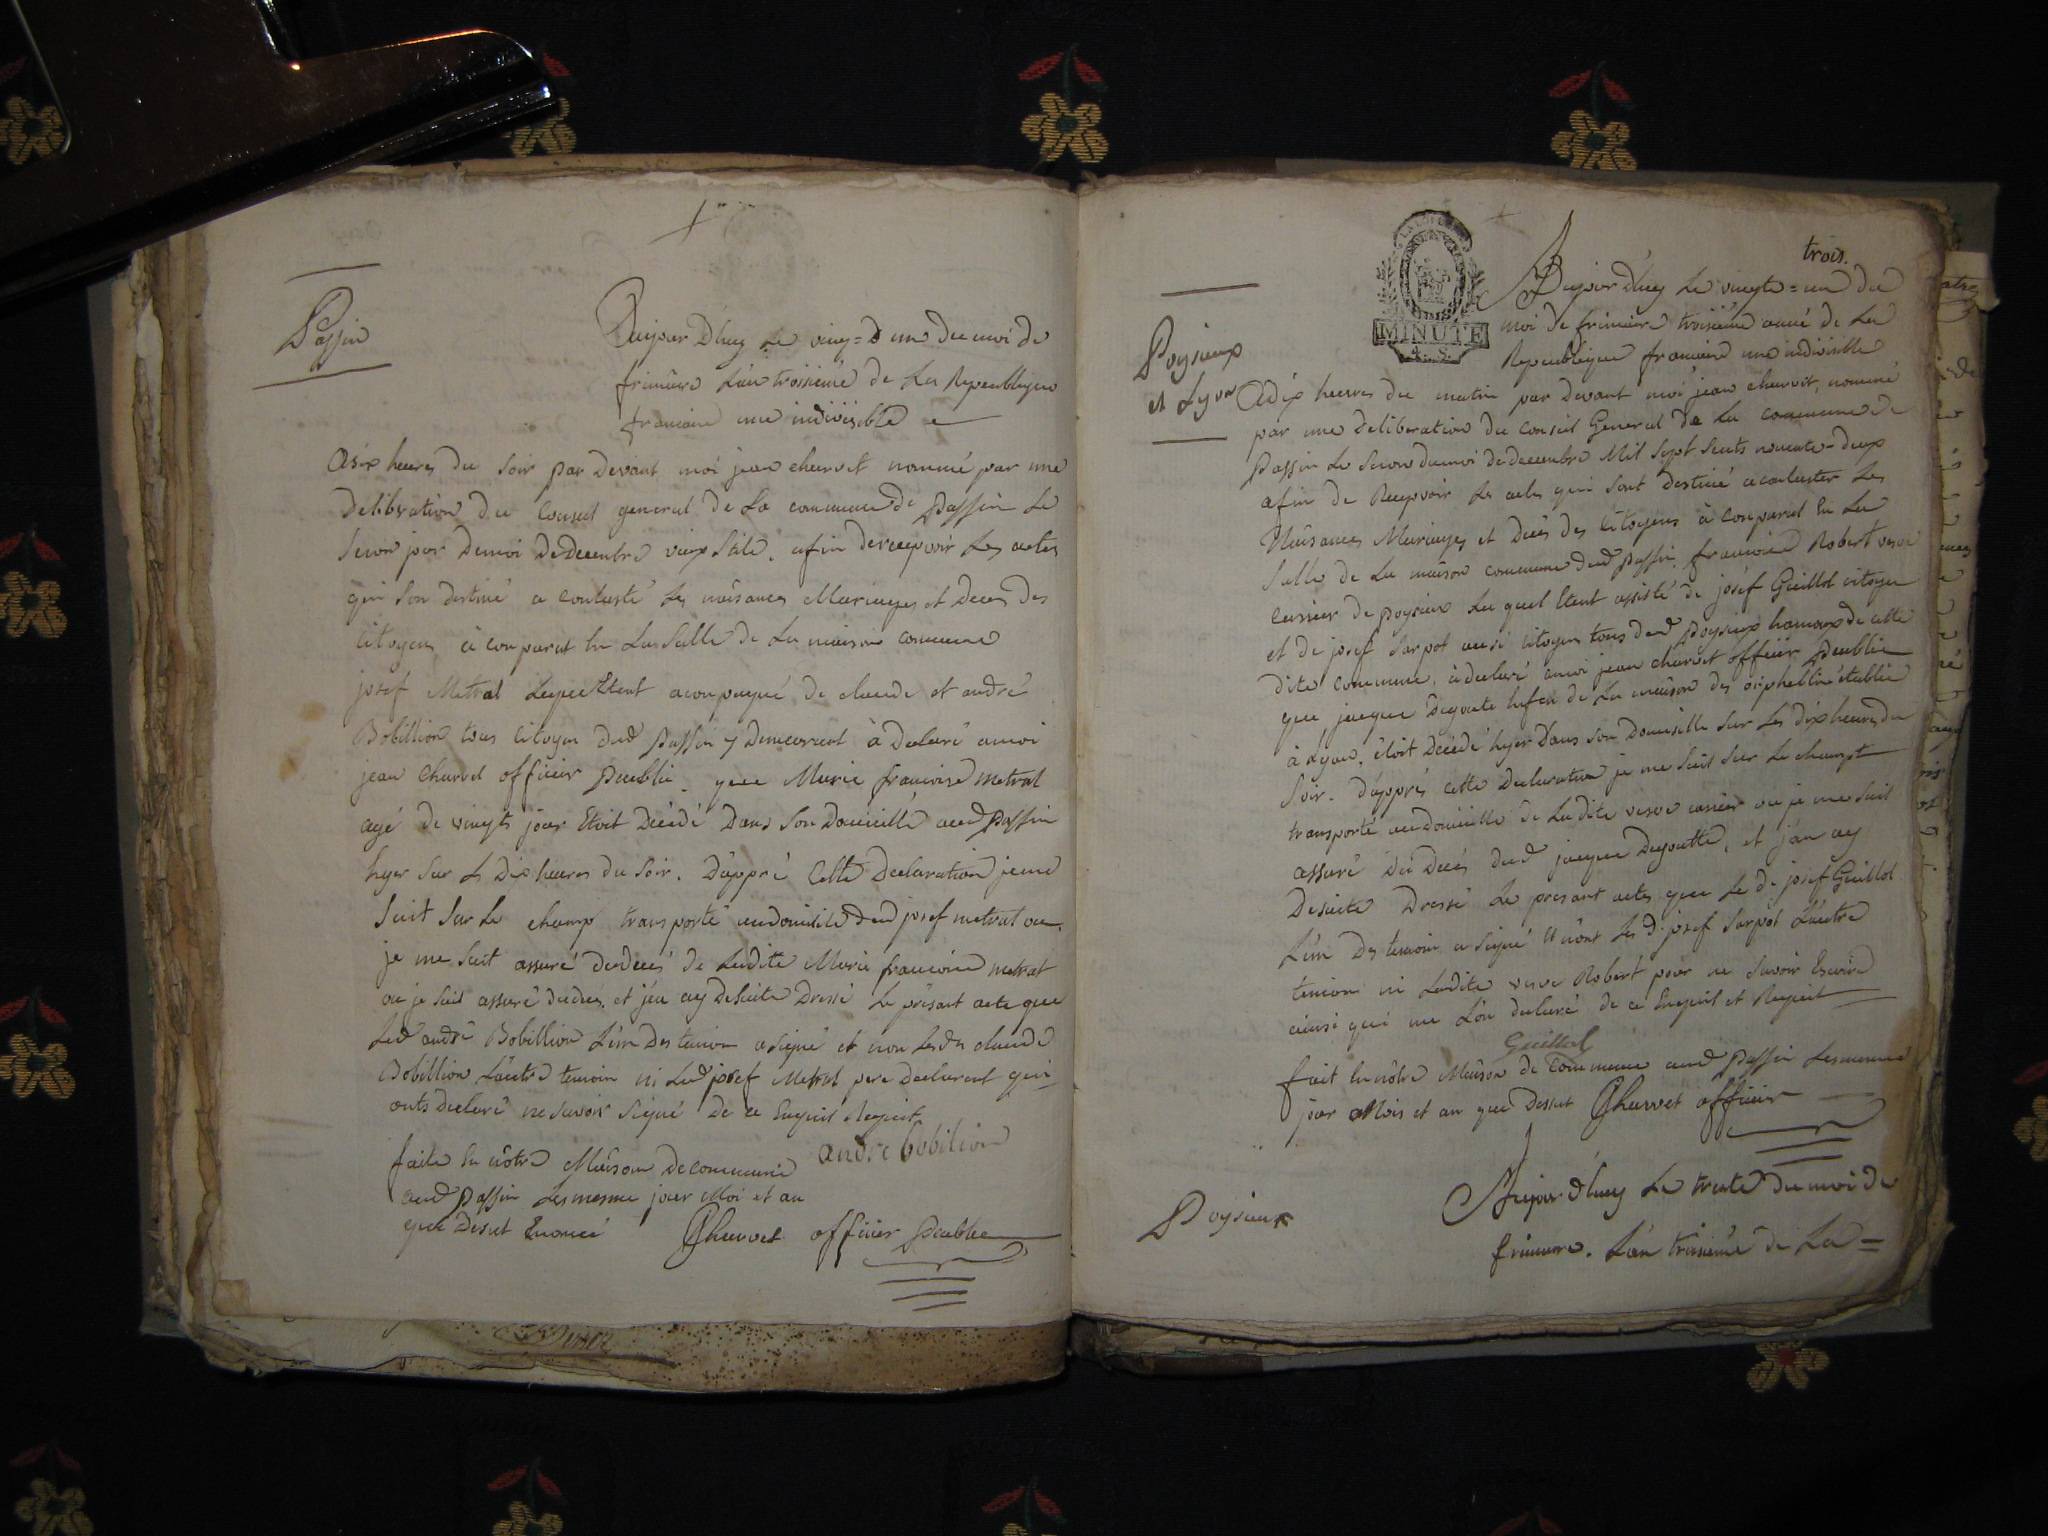 Passin
Aujour d'huy Le vingt = d un du moi de
frimaire L'an troisiemé de La Republique
francaine une indivisible
A six heures du soir par devant moi jean charvet nommé par une
deliberation du Conseil general de La commune de Passin Le
jour de moi de decembre vieux stile. afin de recepvoir Les actes
qui son destiné a Les naisances Mariages et deces des
Citoyens à conparut en La Salle de La maison commune
josef Metral Lequel Etent aconpagné de claude et andré
Bobillion tous Citoyen dud Passin y demeurent à declaré a moi
jean Charvet officier Public. que Marie francoise metral
agé de vingts jour Etoit Décédé Dans Son Domicille aud Passin
hyer sur Ls Dix heures du Soir. D'appré Cette Declaration je me
Suit Sur Le champ transporté au domicile dud josef metral ou
je me Suit assuré du decés de Ladite Marie francoise metrat
ou je Suit assuré du deces. et j'en ay de Suite Dressé Le présant acte que
Led andré Bobillion L'un Des temoin a signé et non Led claude
Bobillion L'autre temoin ni Led josef Metral pere declarent qui
onts declaré ne Savoir Signé De ce Enquit Requit
faite En nôtre Maison de commune andre bobilion
aud Passin Les mesme jour Moi et an
que Desut Enoncé Charvet officier Publice
trois.
MINUTE
4. S.
Poysieux
et Lyon
Aujour d'huy Le vingte = un du
moi de frimaire troisiéme anné de La
Republique francaine une indivisible
A dix heures du matin par devant moi jean charvet, nommé
par une deliberation du Conseil General de La commune de
Passin Le du moi de decembre Mil Sept Sents nonente-deux
afin de Recepvoir Les actes qui Sont destiné a Les
Naisances Mariages et décés des Citoyens à conparut En La
Salle de La maison commune dud Passin. francoise Robert veuve
de poysieux La quel Etent assisté de josef Guillot citoyen
et de josef Sarpot ausi Citoyen tous dud poysieux hamaux de cette
dite commune, à declaré a moi jean charvet officier Publice
que jacque enfan de La maison des orphelline établie
à Lyon, étoit décédé hyer Dans Son Domicille Sur Les dix heures du
Soir. D'apprés cette Declaration je me Suit Sur Le champt
transporté au domicille de Ladite veuve ou je me Suit
assuré Du Decés dud jacque, et j'an ay
De Suite Dressé Le presant actes que Le d. josef Guillot
L'un Des temoin a Signé et nont Le d. josef Sarpot L'autre
temoin ni Ladite veuve Robert pour ne Savoir Escrire
ainsi qui me L'on declaré de ce Enquit et Requit
Guillot
fait En nôtre Maison de Commune aud Passin Les mesme
jour Mois et an que Dessut Charvet officier
Poysieux
Aujour d'huy Le trente du moi de
frimaire. L'an troisiemé de La =